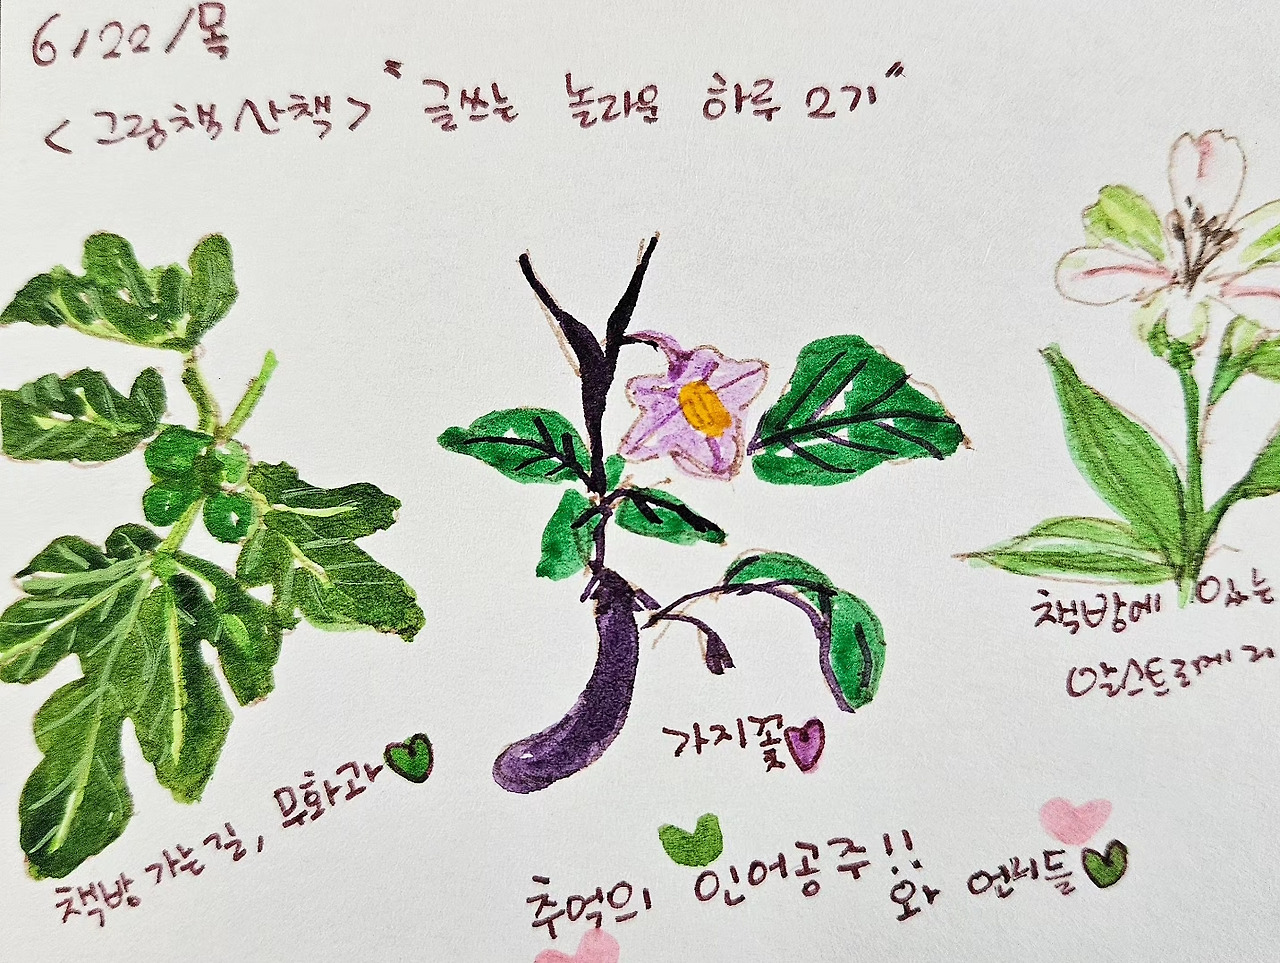 6/22/목
<그림책 산책> "글쓰는 놀라운 하루 2기"
책방에 있는
알스트로메리
가지꽃
책방 가는 길, 무화과
추억의 인어공주!!
와 언니들